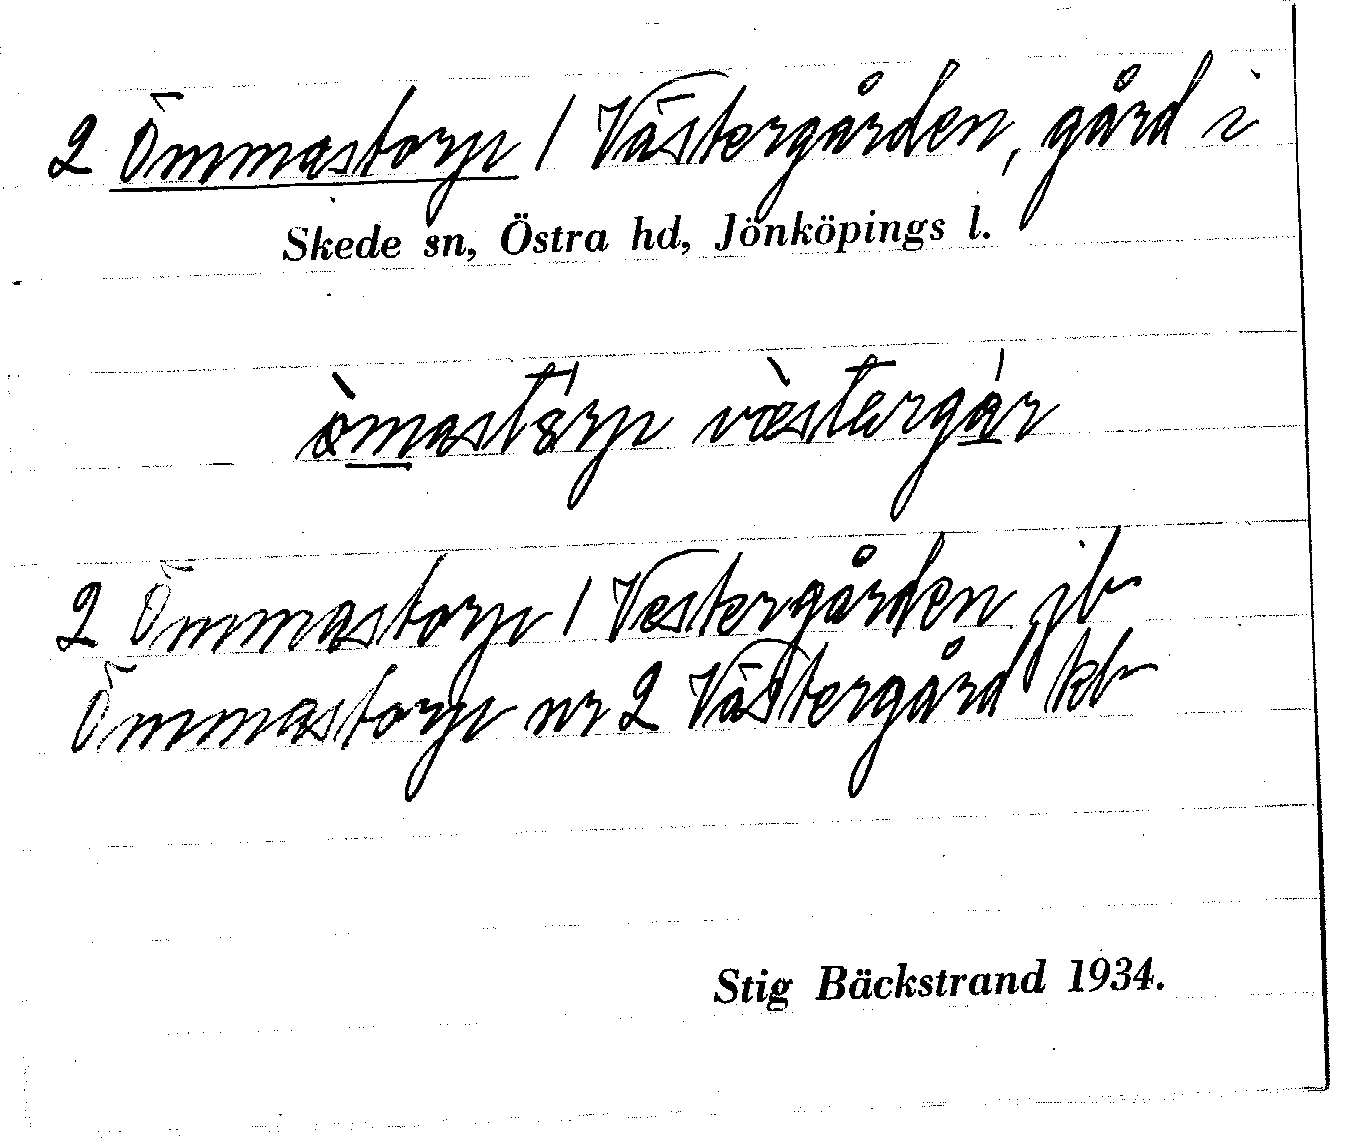 2 Ömmastorp / Västergården, gård i
Skede sn, Östra hd, Jönköpings l.
2 Ömmastorp / Vestergården jb
Ömmastorp nr 2 Västergård kb
Stig Bäckstrand 1934.